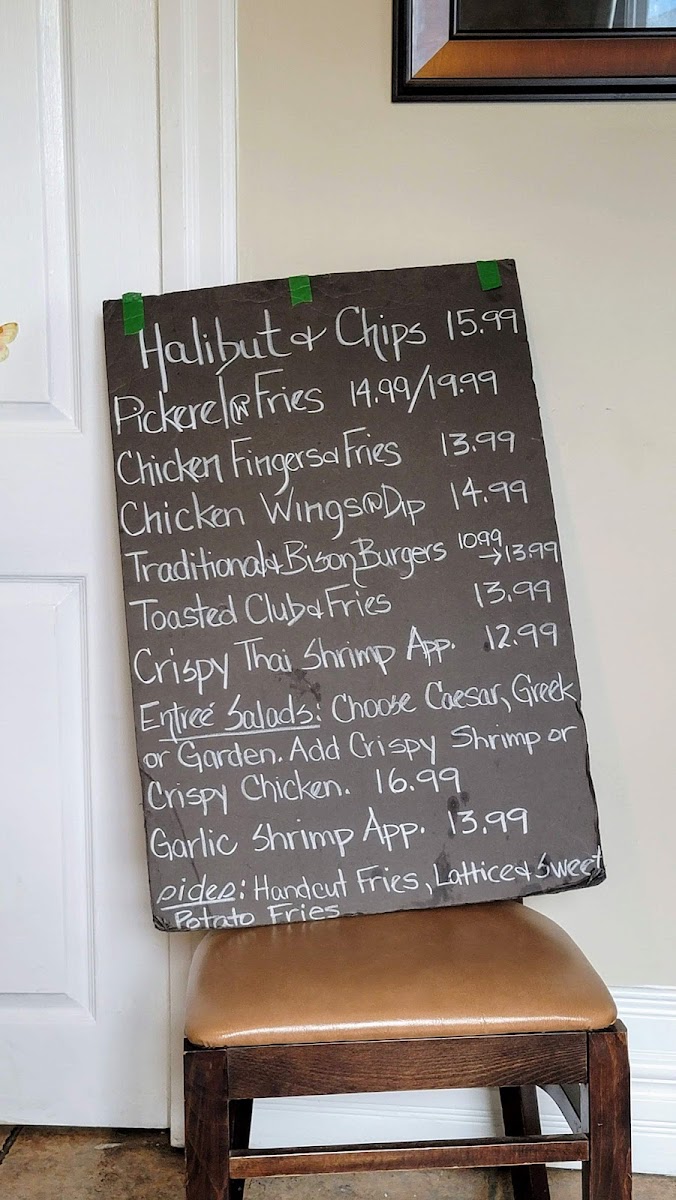 Halibut & Chips 15.99
Pickerel @ Fries 14.99/19.99
Chicken Fingers & Fries 13.99
Chicken Wings @ Dip 14.99
Traditional & Bison Burgers 10.99 → 13.99
Toasted Club & Fries 13.99
Crispy Thai Shrimp App. 12.99
Entreé Salads: Choose Caesar, Greek
or Garden. Add Crispy Shrimp or
Crispy Chicken. 16.99
Garlic Shrimp App. 13.99
Sides: Handcut Fries, Lattice & Sweet
Potato Fries